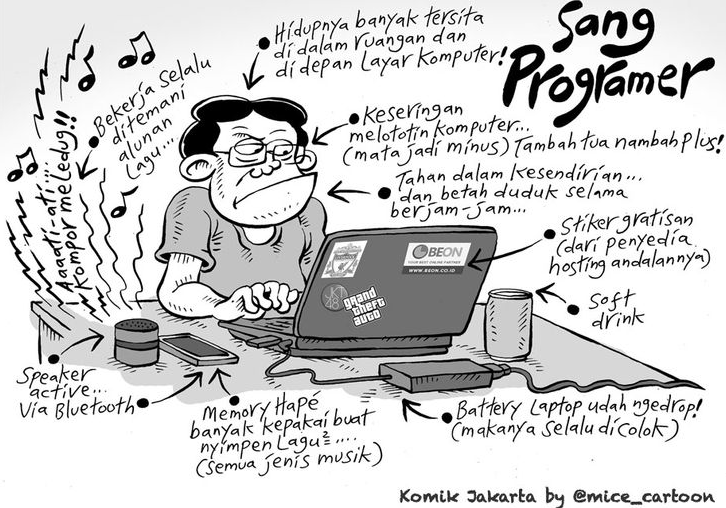 Sang
Programer
Hidupnya banyak tersita
di dalam ruangan dan
di depan Layar Komputer!
Bekerja selalu
ditemani
alunan
Lagu...
Aaaati-ati...
Kompor meledug!!
Keseringan
melototin komputer...
(mata jadi minus) Tambah tua nambah plus!
Tahan dalam kesendirian...
dan betah duduk selama
berjam-jam...
Stiker gratisan
(dari penyedia
hosting andalannya)
Soft
drink
BEON
YOUR BEST ONLINE PARTNER
WWW.BEON.CO.ID
JKT
48
grand
theft
auto
Speaker
active...
Via Bluetooth
Memory Hapé
banyak kepakai buat
nyimpen Lagu²....
(semua jenis musik)
Battery Laptop udah ngedrop!
(makanya selalu dicolok)
Komik Jakarta by @mice_cartoon